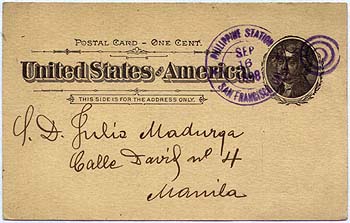 POSTAL CARD – ONE CENT.
United States of America.
THIS SIDE IS FOR THE ADDRESS ONLY.
PHILIPPINE STATION
SEP
16
SAN FRANCISCO
S. D. Julio Madurga
Calle David nº 4
Manila